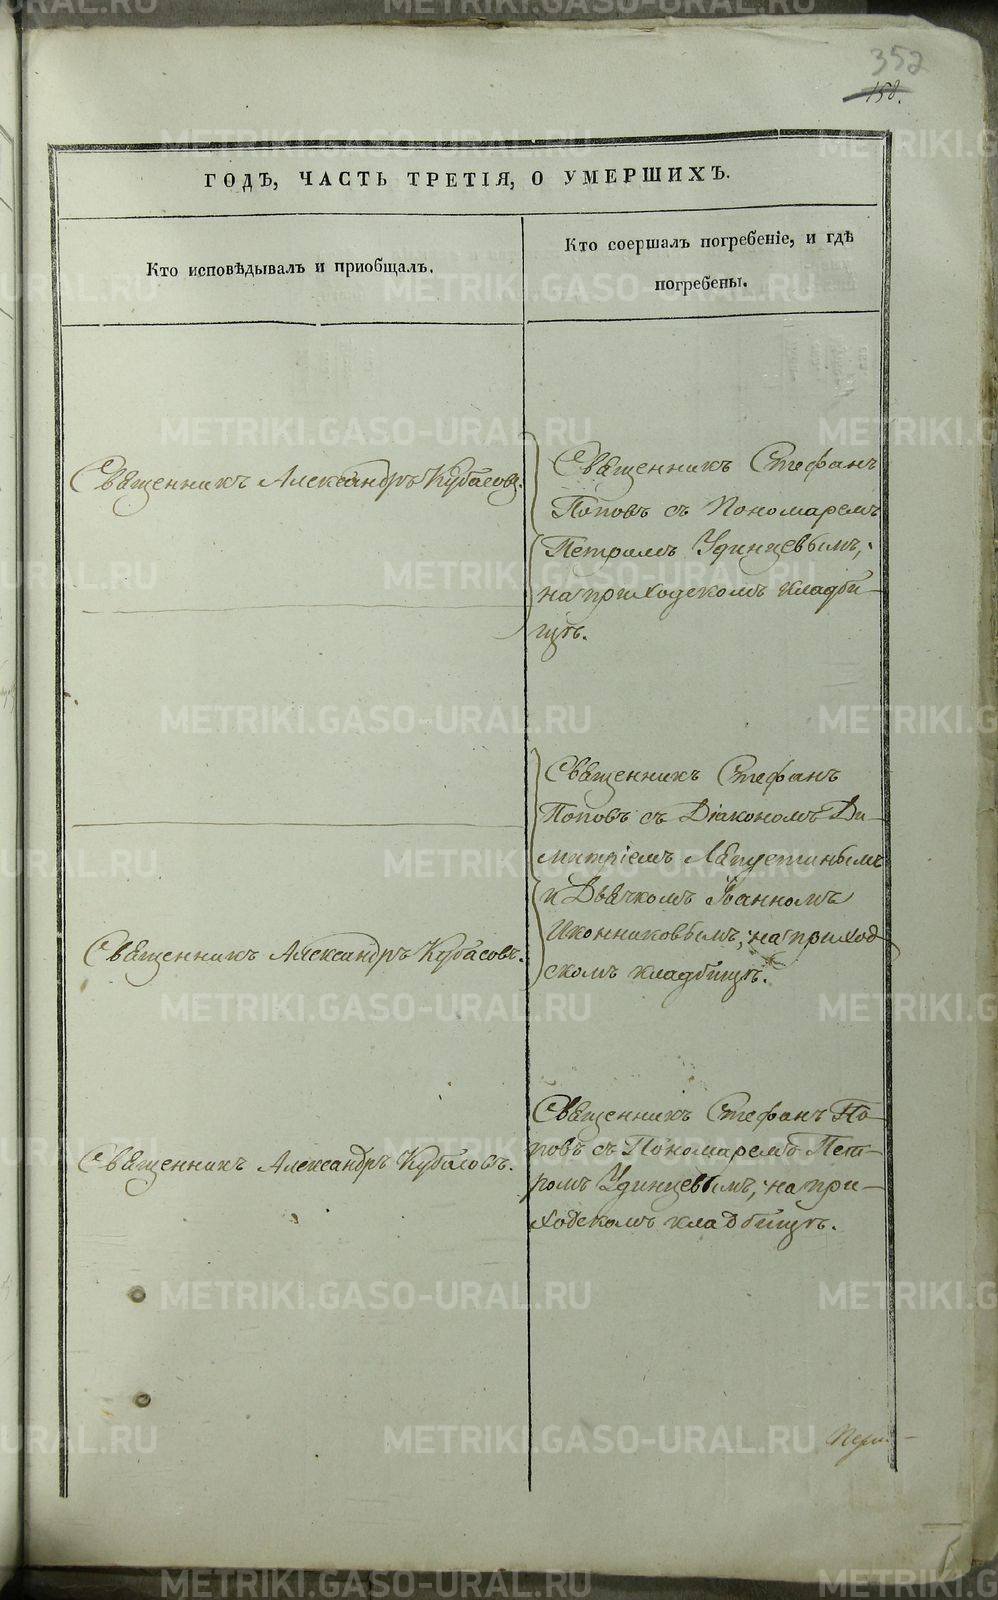 352
158.
ГОДЪ, ЧАСТЬ ТРЕТІЯ, О УМЕРШИХЪ.
Кто исповѣдывалъ и пріобщалъ.
Кто соершалъ погребеніе, и гдѣ
погребены.
Священникъ Александръ Кубасовъ.
Священникъ Стефанъ
Поповъ съ Пономаремъ
Петромъ Удинцевымъ,
на приходскомъ кладби-
щѣ.
Священникъ Стефанъ
Поповъ съ Діакономъ Ди-
митріемъ
и Дьячкомъ Іоанномъ
Иконниковымъ, на приход
скомъ кладбищѣ.
Священникъ Александръ Кубасовъ.
Священникъ Александръ Кубасовъ.
Священникъ Стефанъ По-
повъ съ Пономаремъ Пет-
ромъ Удинцевымъ, на при-
ходскомъ кладбищѣ.
METRIKI.GASO-URAL.RU